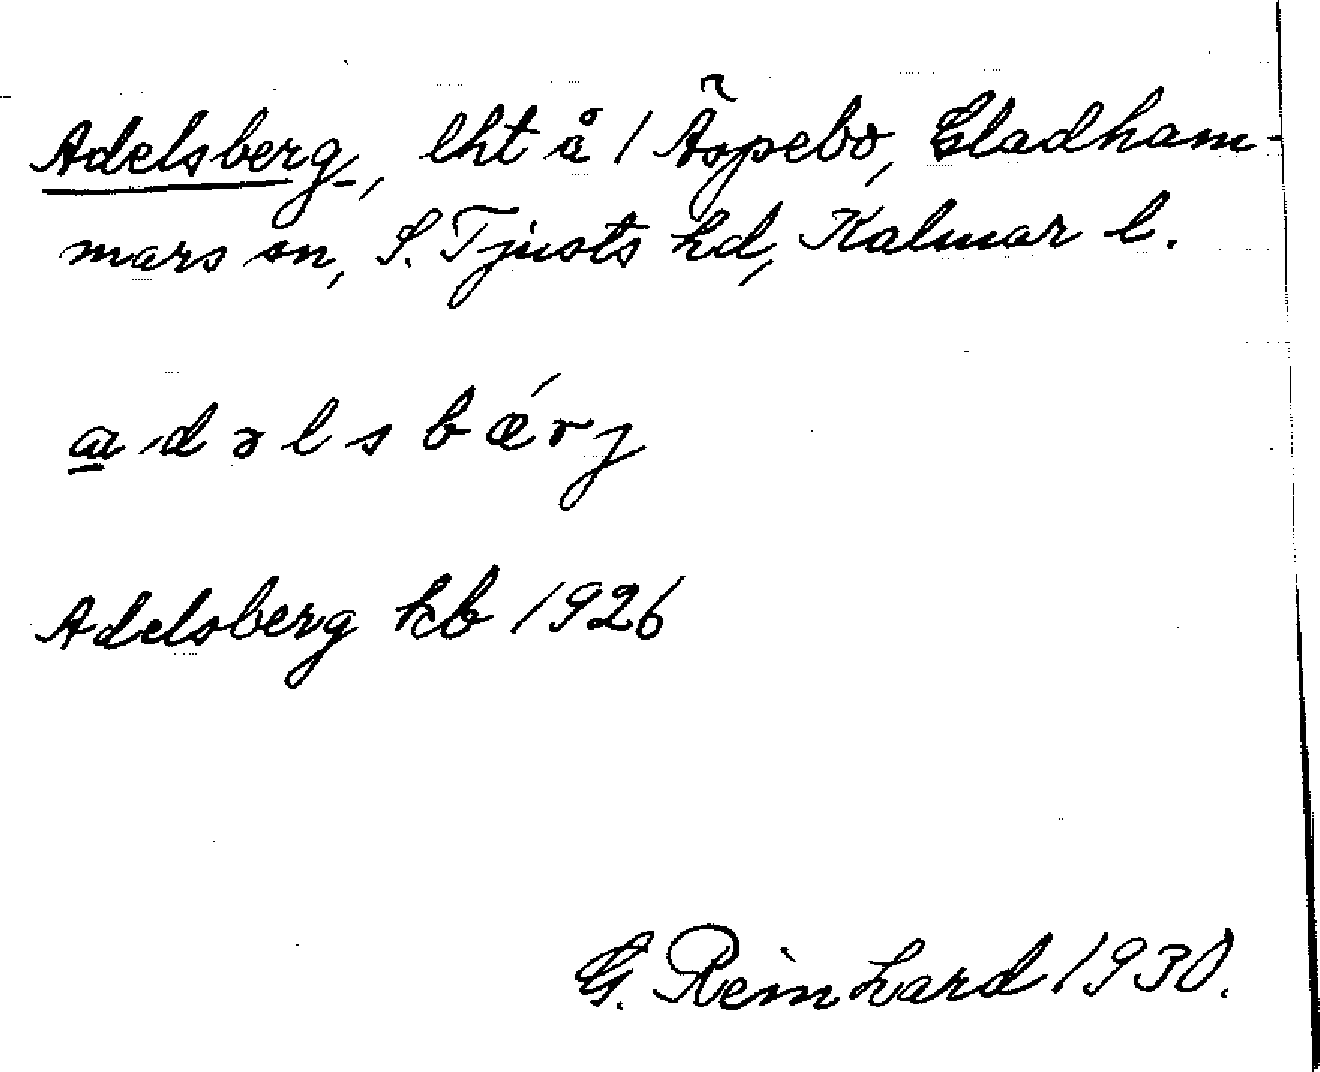 Adelsberg, lht å 1 Äspebo, Gladham-
mars sn, S. Tjusts hd, Kalmar l.
a d ə l s b ǽ r j
Adelsberg kb 1926
G. Reinhard 1930.